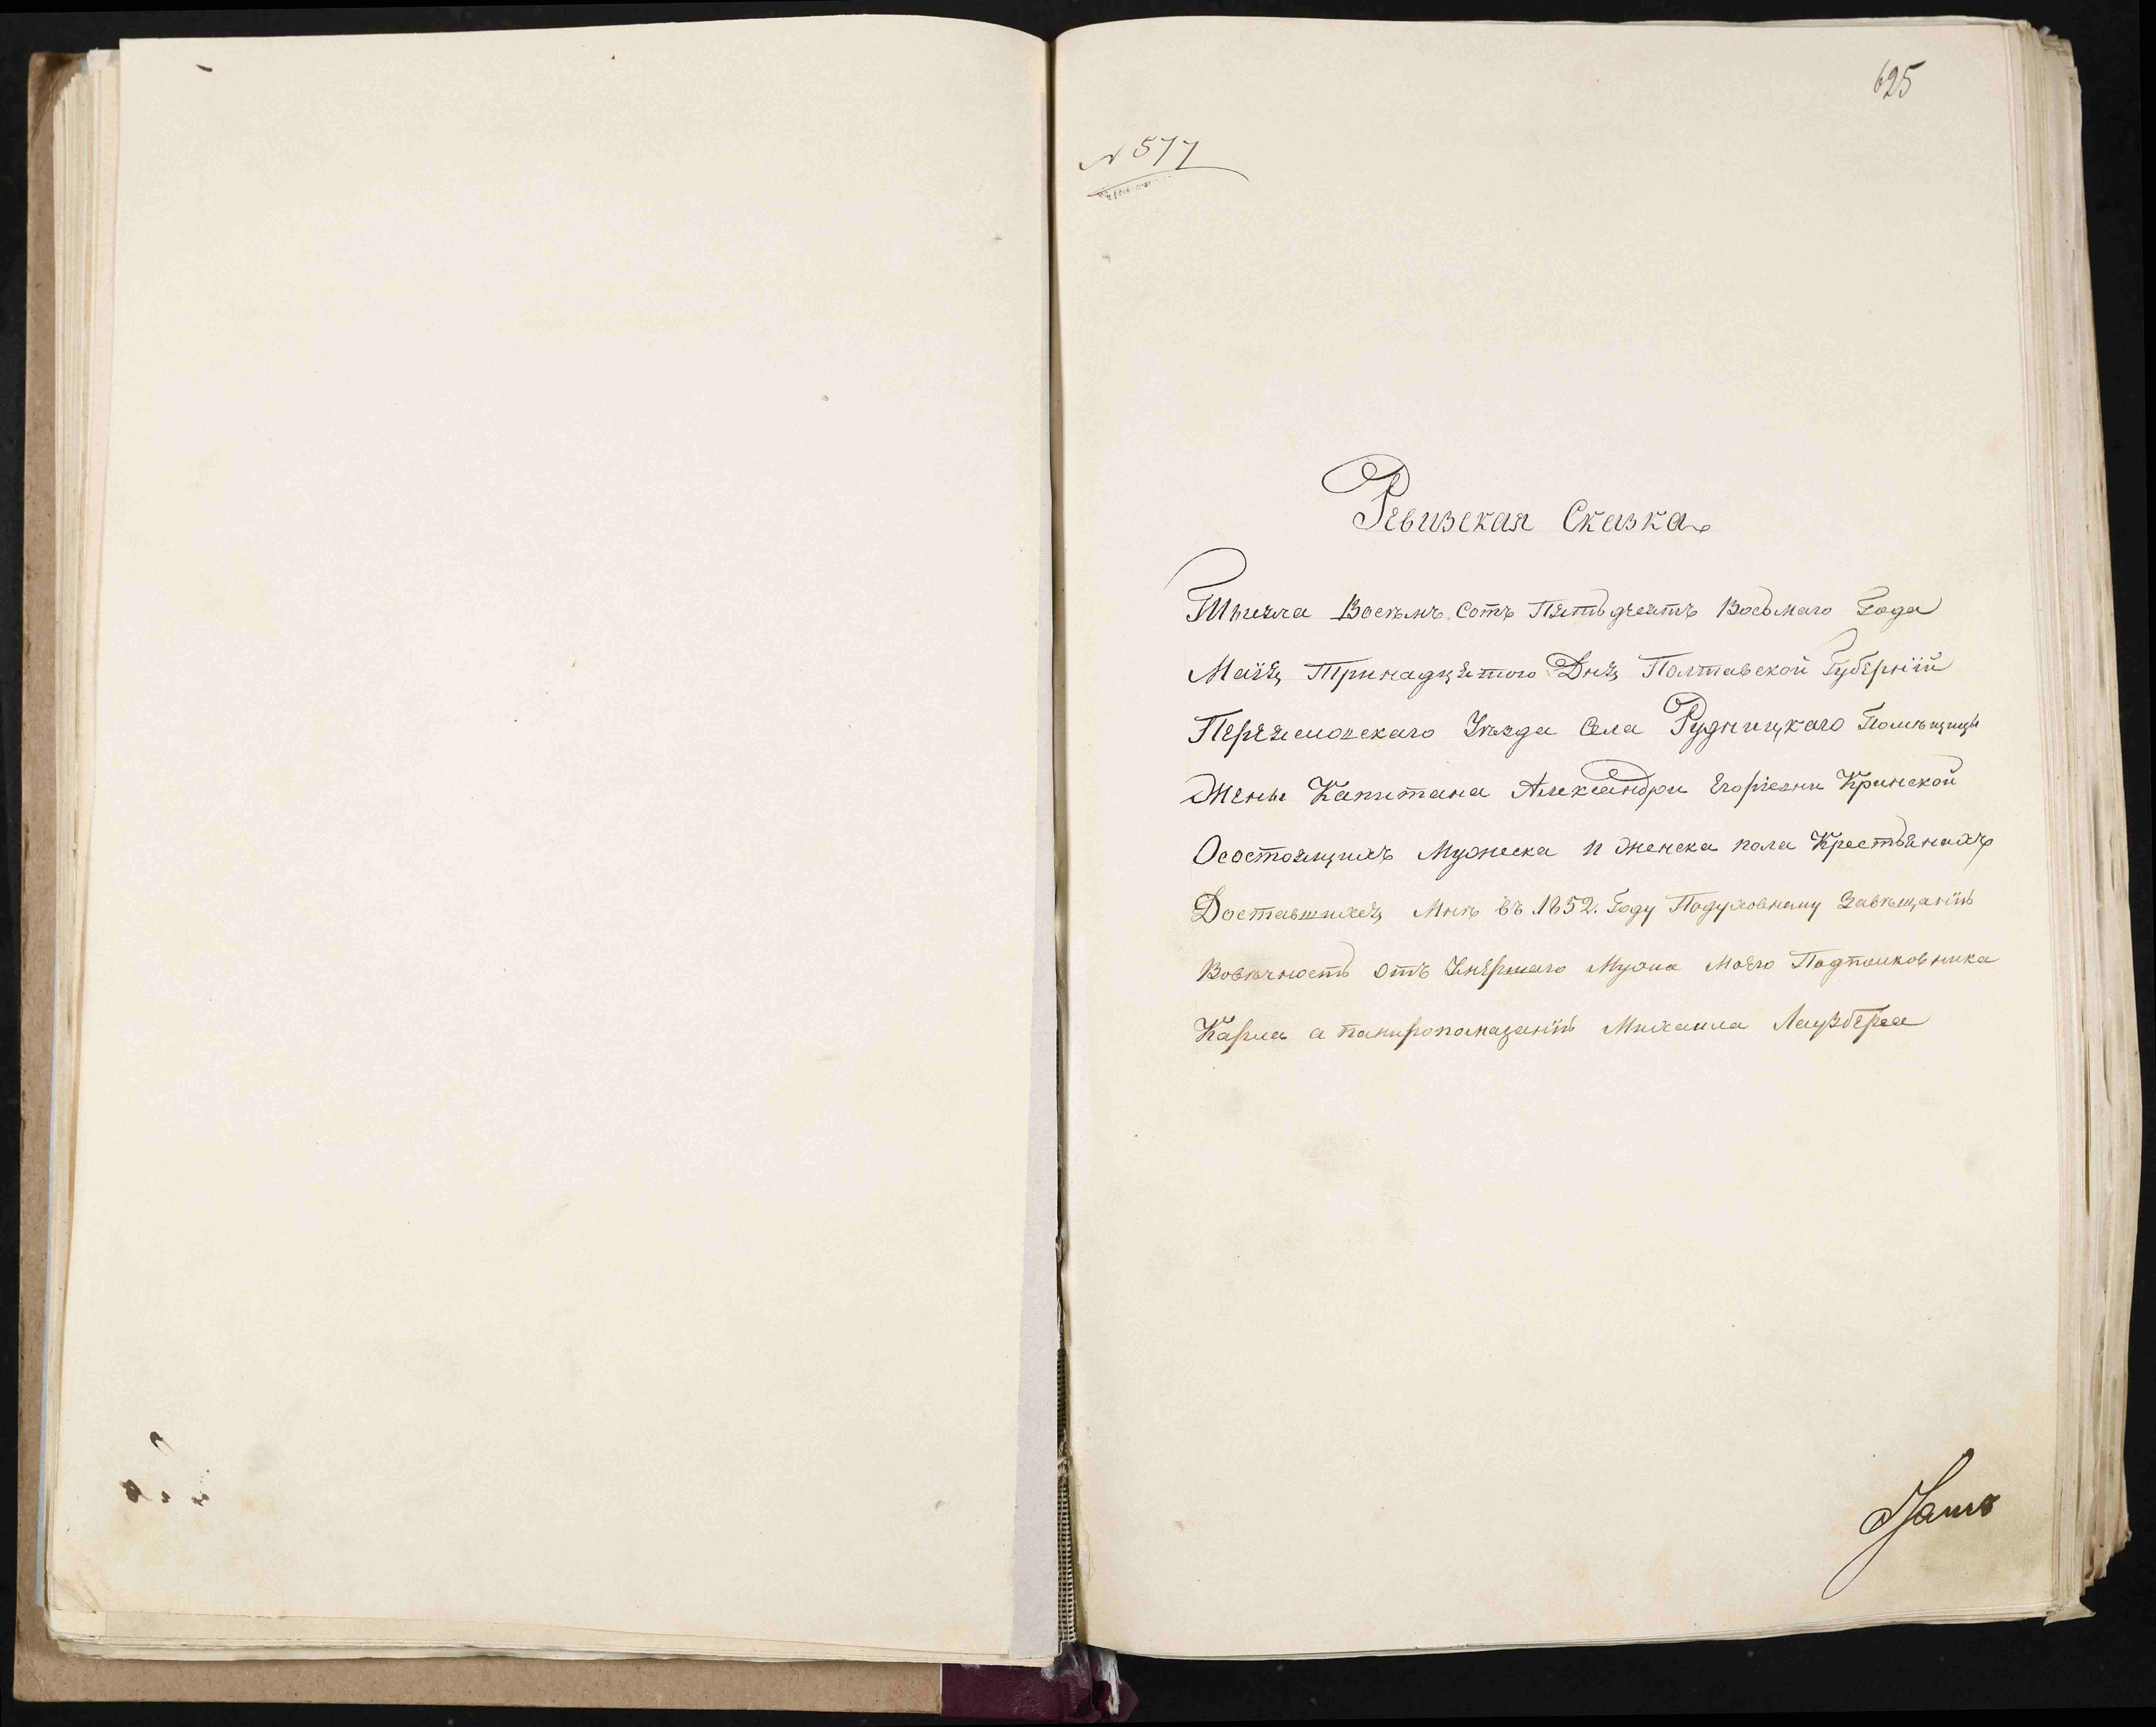 625
№ 577
Ревизская Сказка
Тысяча Восемъ Сотъ Пятьдесятъ Восьмаго Года
Маія Тринадцятого Дня Полтавской Губерніи
Переяславскаго Уезда Села Рудницкаго Помѣщицы
Жены Капитана Александри Егорьевни Кринской
Осостоящихъ Мужеска и женска пола Крестьянахъ
Доставшихся Мнѣ въ 1852. Году Подуховному Завѣщанію
Вовѣчность отъ Умершаго Мужа Моего Подполковника
Карла а помиропомазанію Михаила